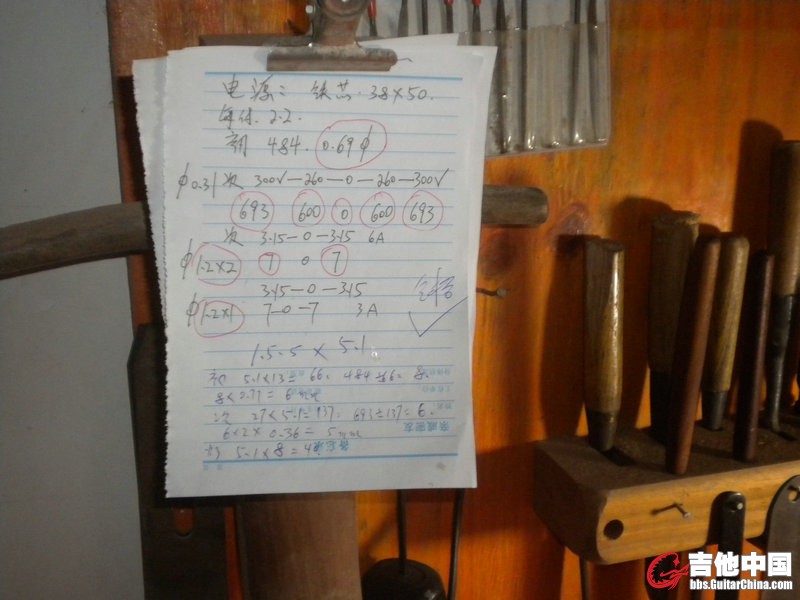 电源: 铁芯 38×50.
每伏. 2.2.
初 484. 0.69φ
φ0.31 次 300V—260—0—260—300V
693 600 0 600 693
次 3.15—0—3.15 6A
φ1.2×2 7 0 7
3.15—0—3.15
φ1.2×1 7—0—7 3A
1.5.5×5.1
初 5.1×13= 66. 484÷66= 8.
8×0.77= 6mm
次 27×5.1=137. 693÷137=6.
6×2×0.36= 5mm
5.1×8=4
吉他中国
bbs.GuitarChina.com